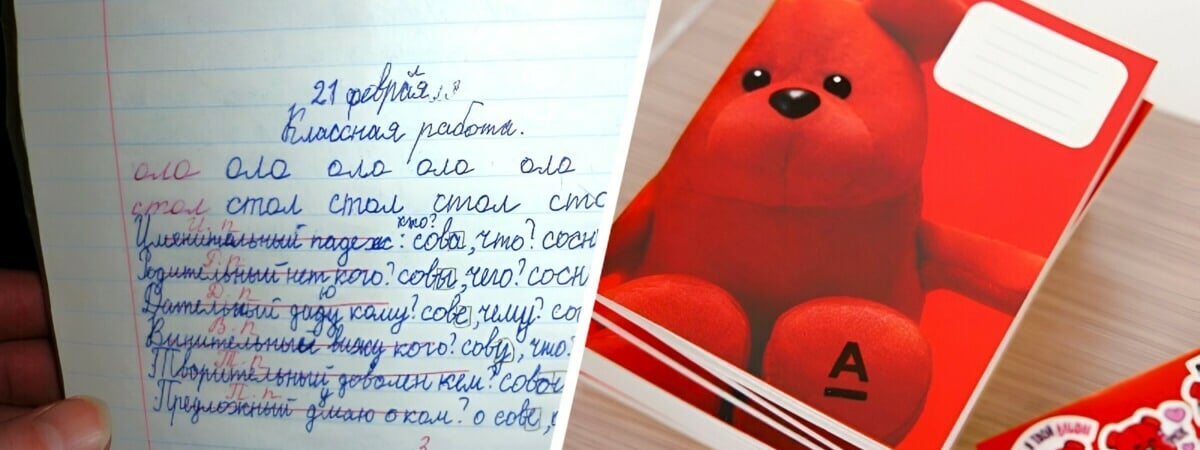 21 февраля
Классная работа.
ола ола ола ола ола
стол стол стол стол сто
И.п кто?
Именительный падеж: сова, что? сосн
Р.п
Родительный нет кого? совы, чего? сосн
Д.п ю
Дательный даду кому? сове, чему? со
В.п
Винительный вижу кого? сову, что?
Т.п
Творительный доволен кем? совой
П.п у
Предложный дмаю о ком? о сове,
А
Я ТВОЙ